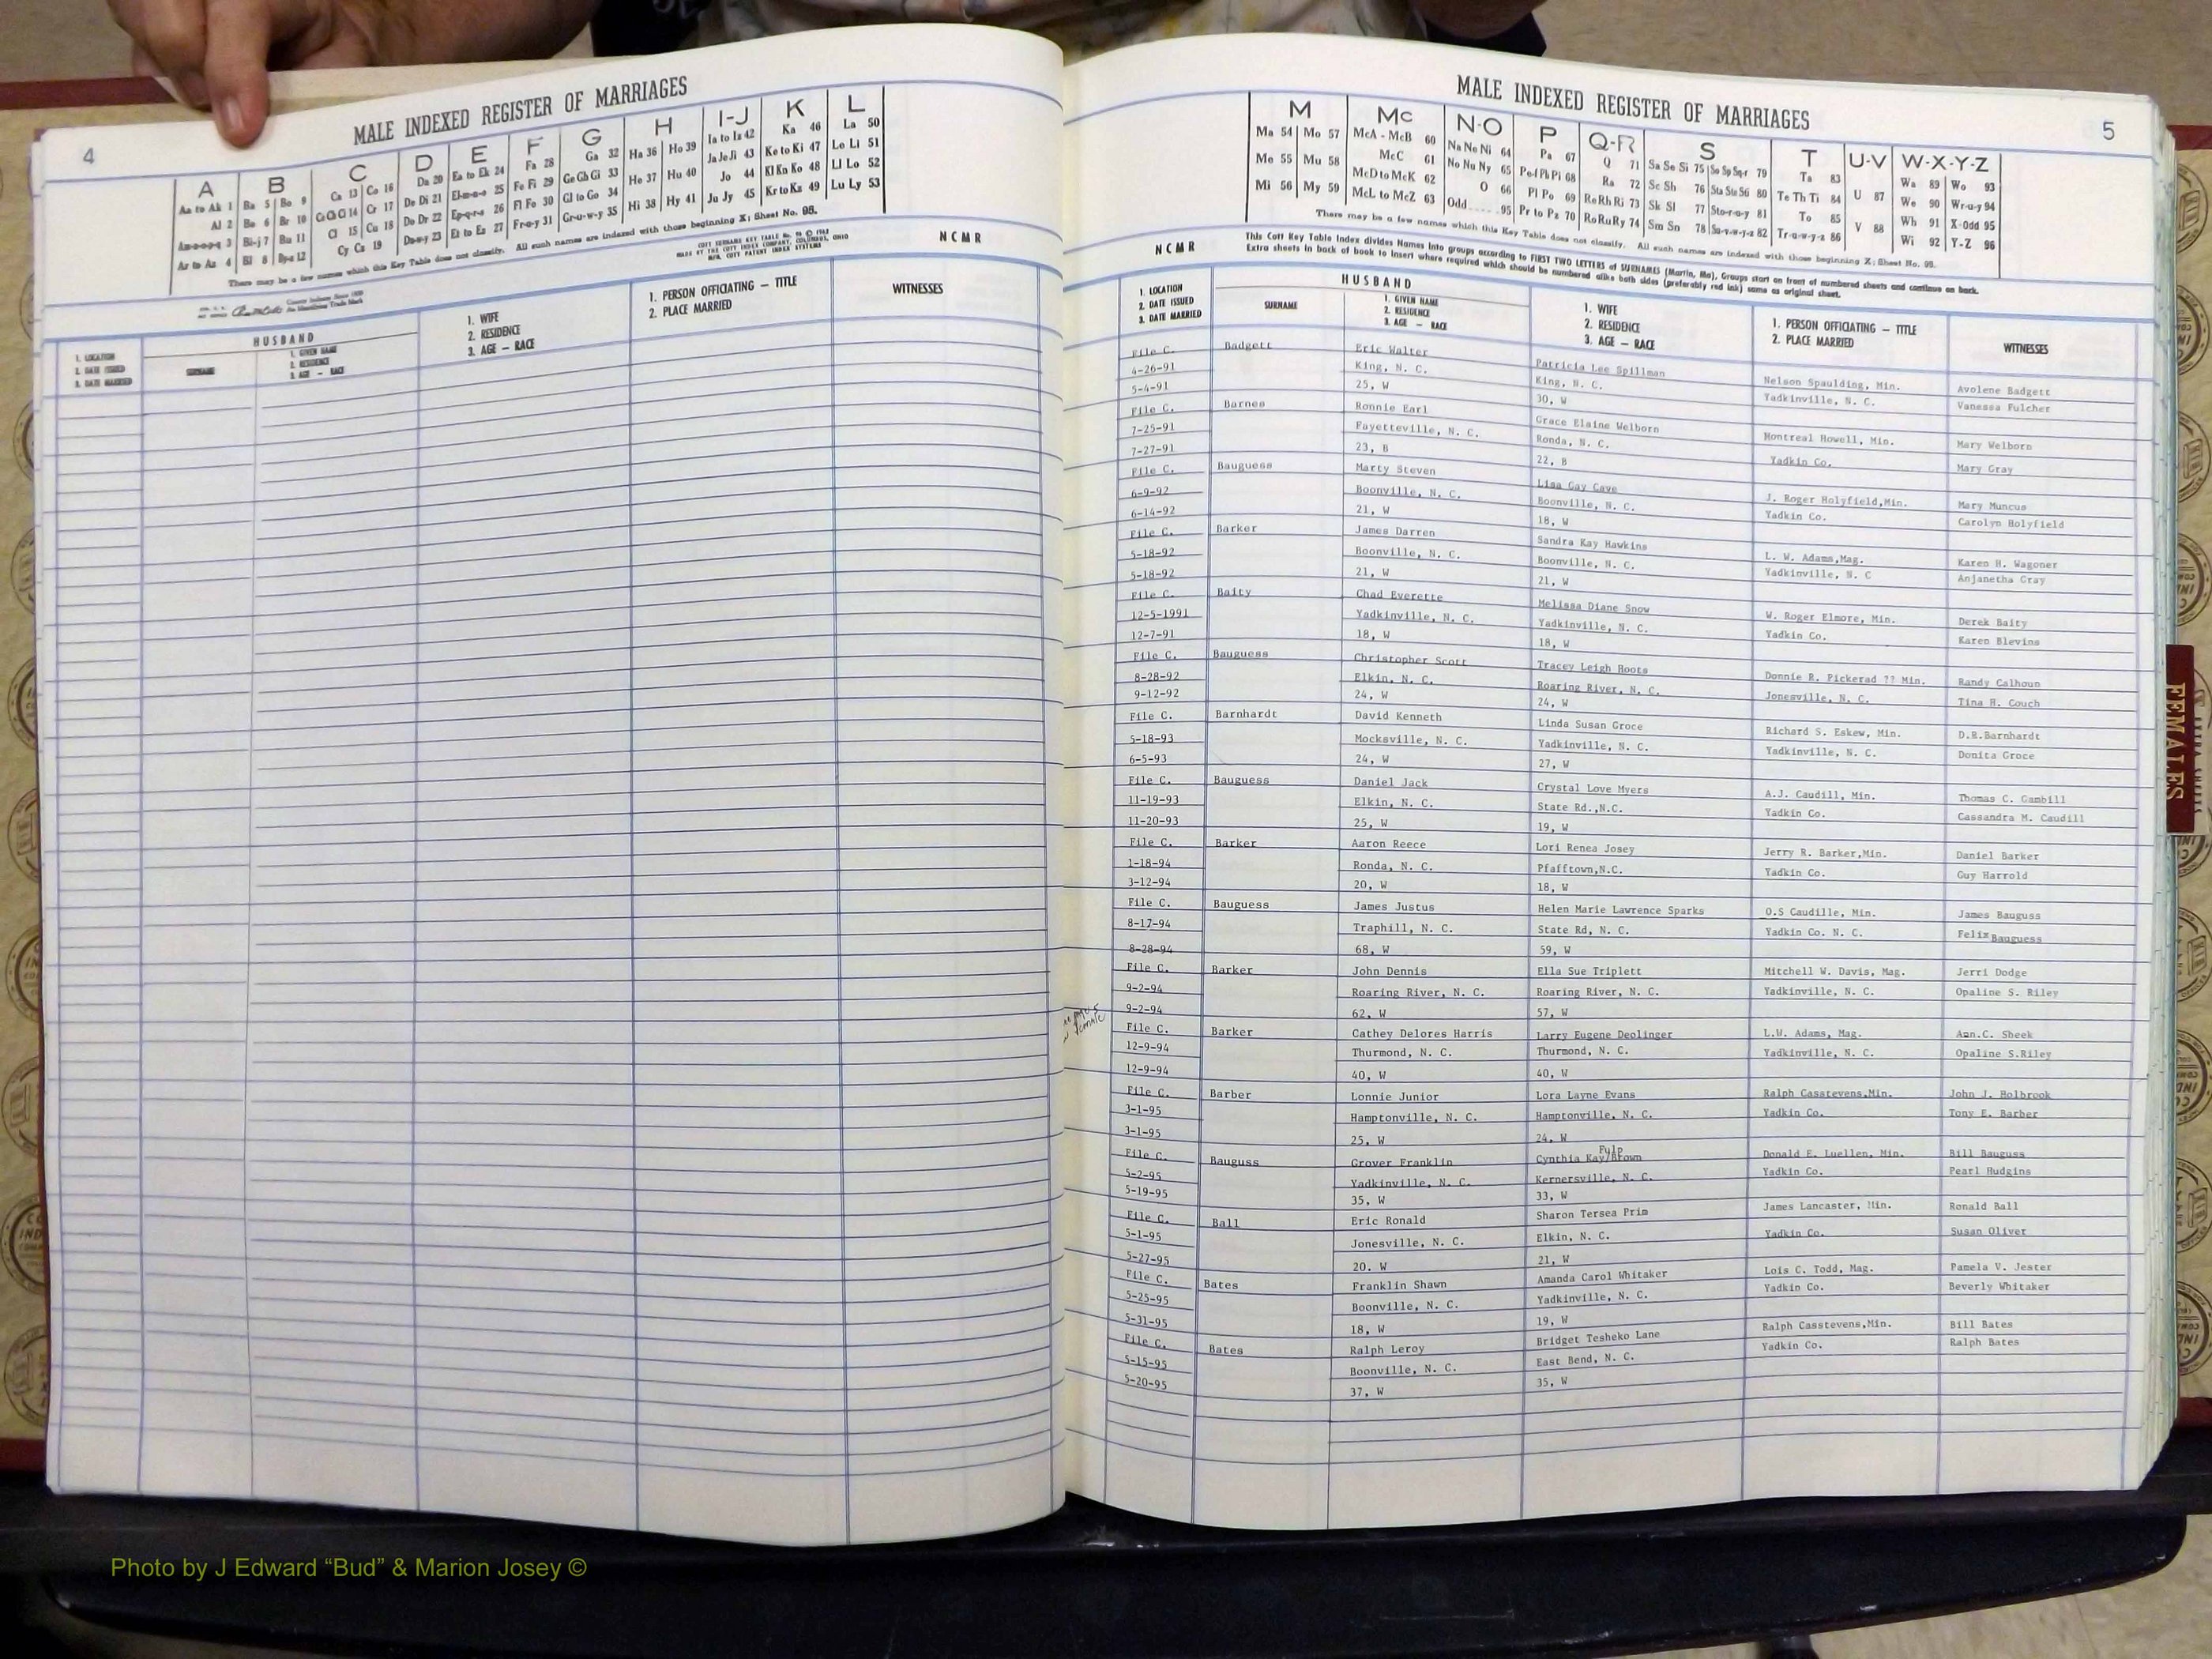 4
MALE INDEXED REGISTER OF MARRIAGES
A B C D E F G H I-J K L
Aa to Ak 1 Ba 5 Bo 9 Ca 13 Co 16 Da 20 Ea to Ek 24 Fa 28 Ga 32 Ha 36 Ho 39 Ia to Iz 42 Ka 46 La 50
Al 2 Be 6 Br 10 Ce Ch Ci 14 Cr 17 De Di 21 El-m-n-o 25 Fe Fi 29 Ge Gh Gi 33 He 37 Hu 40 Ja Je Ji 43 Ke to Ki 47 Le Li 51
Am-n-o-p-q 3 Bi-j 7 Bu 11 Cl 15 Cu 18 Do Dr 22 Ep-q-r-s 26 Fl Fo 30 Gl to Go 34 Hi 38 Hy 41 Jo 44 Kl Kn Ko 48 Ll Lo 52
Ar to Az 4 Bl 8 By-z 12 Cy Cz 19 Du-w-y 23 Et to Ez 27 Fr-u-y 31 Gr-u-w-y 35 Ju Jy 45 Kr to Kz 49 Lu Ly 53
There may be a few names which this Key Table does not classify. All such names are indexed with those beginning X; Sheet No. 95.
NCMR
HUSBAND
1. LOCATION
2. DATE ISSUED
3. DATE MARRIED
SURNAME
1. GIVEN NAME
2. RESIDENCE
3. AGE — RACE
1. WIFE
2. RESIDENCE
3. AGE — RACE
1. PERSON OFFICIATING — TITLE
2. PLACE MARRIED
WITNESSES
MALE INDEXED REGISTER OF MARRIAGES
5
M Mc N-O P Q-R S T U-V W-X-Y-Z
Ma 54 Mo 57 McA - McB 60 Na Ne Ni 64 Pa 67 Q 71 Sa Se Si 75 So Sp Sq-r 79 Ta 83 U 87 Wa 89 Wo 93
Me 55 Mu 58 McC 61 No Nu Ny 65 Pe-f Ph Pi 68 Ra 72 Sc Sh 76 Sta Ste Sti 80 Te Th Ti 84 V 88 We 90 Wr-u-y 94
Mi 56 My 59 McD to McK 62 O 66 Pl Po 69 Re Rh Ri 73 Sk Sl 77 Sto-r-u-y 81 To 85 Wh 91 X-Odd 95
McL to McZ 63 Odd 95 Pr to Pz 70 Ro Ru Ry 74 Sm Sn 78 Su-v-w-y-z 82 Tr-u-w-y-z 86 Wi 92 Y-Z 96
There may be a few names which this Key Table does not classify. All such names are indexed with those beginning X; Sheet No. 95.
This Cott Key Table Index divides Names into groups according to FIRST TWO LETTERS of SURNAMES (Martin, Ma), Groups start on front of numbered sheets and continue on back.
Extra sheets in back of book to insert where required which should be numbered alike both sides (preferably red ink) same as original sheet.
NCMR
HUSBAND
1. LOCATION
2. DATE ISSUED
3. DATE MARRIED
SURNAME
1. GIVEN NAME
2. RESIDENCE
3. AGE — RACE
1. WIFE
2. RESIDENCE
3. AGE — RACE
1. PERSON OFFICIATING — TITLE
2. PLACE MARRIED
WITNESSES
File C. Badgett Eric Walter Patricia Lee Spillman Nelson Spaulding, Min. Avolene Badgett
4-26-91 King, N. C. King, N. C. Yadkinville, N. C. Vanessa Fulcher
5-4-91 25, W 30, W
File C. Barnes Ronnie Earl Grace Elaine Welborn Montreal Howell, Min. Mary Welborn
7-25-91 Fayetteville, N. C. Ronda, N. C. Yadkin Co. Mary Gray
7-27-91 23, B 22, B
File C. Bauguess Marty Steven Lisa Gay Cave J. Roger Holyfield,Min. Mary Muncus
6-9-92 Boonville, N. C. Boonville, N. C. Yadkin Co. Carolyn Holyfield
6-14-92 21, W 18, W
File C. Barker James Darren Sandra Kay Hawkins L. W. Adams,Mag. Karen H. Wagoner
5-18-92 Boonville, N. C. Boonville, N. C. Yadkinville, N. C Anjanetha Gray
5-18-92 21, W 21, W
File C. Baity Chad Everette Melissa Diane Snow W. Roger Elmore, Min. Derek Baity
12-5-1991 Yadkinville, N. C. Yadkinville, N. C. Yadkin Co. Karen Blevins
12-7-91 18, W 18, W
File C. Bauguess Christopher Scott Tracey Leigh Roots Donnie R. Pickerad ?? Min. Randy Calhoun
8-28-92 Elkin, N. C. Roaring River, N. C. Jonesville, N. C. Tina H. Couch
9-12-92 24, W 24, W
File C. Barnhardt David Kenneth Linda Susan Groce Richard S. Eskew, Min. D.R.Barnhardt
5-18-93 Mocksville, N. C. Yadkinville, N. C. Yadkinville, N. C. Donita Groce
6-5-93 24, W 27, W
File C. Bauguess Daniel Jack Crystal Love Myers A.J. Caudill, Min. Thomas C. Gambill
11-19-93 Elkin, N. C. State Rd.,N.C. Yadkin Co. Cassandra M. Caudill
11-20-93 25, W 19, W
File C. Barker Aaron Reece Lori Renea Josey Jerry R. Barker,Min. Daniel Barker
1-18-94 Ronda, N. C. Pfafftown,N.C. Yadkin Co. Guy Harrold
3-12-94 20, W 18, W
File C. Bauguess James Justus Helen Marie Lawrence Sparks O.S Caudille, Min. James Bauguss
8-17-94 Traphill, N. C. State Rd, N. C. Yadkin Co. N. C. Felix Bauguess
8-28-94 68, W 59, W
File C. Barker John Dennis Ella Sue Triplett Mitchell W. Davis, Mag. Jerri Dodge
9-2-94 Roaring River, N. C. Roaring River, N. C. Yadkinville, N. C. Opaline S. Riley
9-2-94 62, W 57, W
File C. Barker Cathey Delores Harris Larry Eugene Deolinger L.W. Adams, Mag. Ann.C. Sheek
12-9-94 Thurmond, N. C. Thurmond, N. C. Yadkinville, N. C. Opaline S.Riley
12-9-94 40, W 40, W
File C. Barber Lonnie Junior Lora Layne Evans Ralph Casstevens,Min. John J. Holbrook
3-1-95 Hamptonville, N. C. Hamptonville, N. C. Yadkin Co. Tony E. Barber
3-1-95 25, W 24, W
File C. Bauguss Grover Franklin Cynthia Kay/Brown Fulp Donald E. Luellen, Min. Bill Bauguss
5-2-95 Yadkinville, N. C. Kernersville, N. C. Yadkin Co. Pearl Hudgins
5-19-95 35, W 33, W
File C. Ball Eric Ronald Sharon Tersea Prim James Lancaster, Min. Ronald Ball
5-1-95 Jonesville, N. C. Elkin, N. C. Yadkin Co. Susan Oliver
5-27-95 20. W 21, W
File C. Bates Franklin Shawn Amanda Carol Whitaker Lois C. Todd, Mag. Pamela V. Jester
5-25-95 Boonville, N. C. Yadkinville, N. C. Yadkin Co. Beverly Whitaker
5-31-95 18, W 19, W
File C. Bates Ralph Leroy Bridget Tesheko Lane Ralph Casstevens,Min. Bill Bates
5-15-95 Boonville, N. C. East Bend, N. C. Yadkin Co. Ralph Bates
5-20-95 37, W 35, W
FEMALES
Photo by J Edward “Bud” & Marion Josey ©